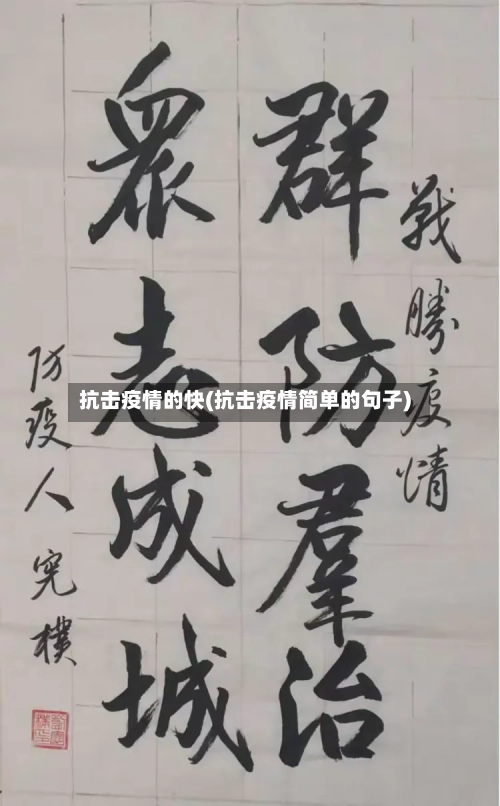 戰勝疫情
群防羣治
眾志成城
防疫人 宪樸
抗击疫情的快(抗击疫情简单的句子)